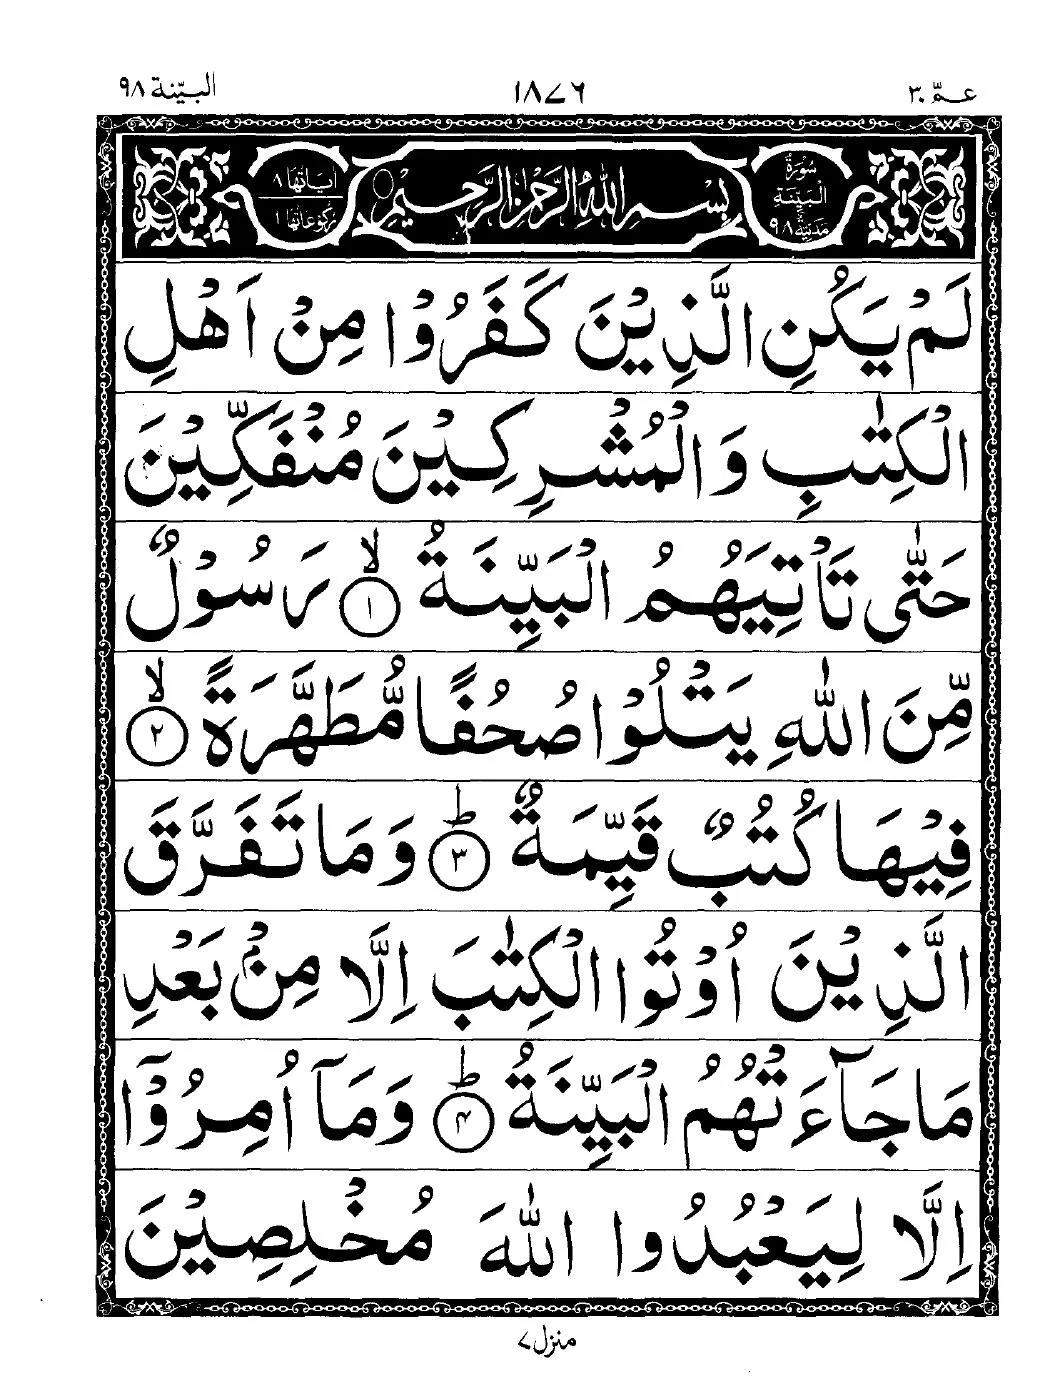 عـمّ ٣٠
١٨٧٦
البيّنة ٩٨
سُورَةُ
الْبَيِّنَةِ
مَدَنِيَّة ٩٨
بِسْمِ اللّٰهِ الرَّحْمٰنِ الرَّحِيْمِ
اٰيَاتُهَا ٨
رُكُوْعَاتُهَا ١
لَمْ يَكُنِ الَّذِيْنَ كَفَرُوْا مِنْ اَهْلِ
الْكِتٰبِ وَ الْمُشْرِكِيْنَ مُنْفَكِّيْنَ
حَتّٰى تَاْتِيَهُمُ الْبَيِّنَةُ ۙ﴿١﴾ رَسُوْلٌ
مِّنَ اللّٰهِ يَتْلُوْا صُحُفًا مُّطَهَّرَةً ۙ﴿٢﴾
فِيْهَا كُتُبٌ قَيِّمَةٌ ؕ﴿٣﴾ وَ مَا تَفَرَّقَ
الَّذِيْنَ اُوْتُوا الْكِتٰبَ اِلَّا مِنْۢ بَعْدِ
مَا جَآءَتْهُمُ الْبَيِّنَةُ ؕ﴿۴﴾ وَ مَاۤ اُمِرُوْۤا
اِلَّا لِيَعْبُدُوا اللّٰهَ مُخْلِصِيْنَ
منزل ٧